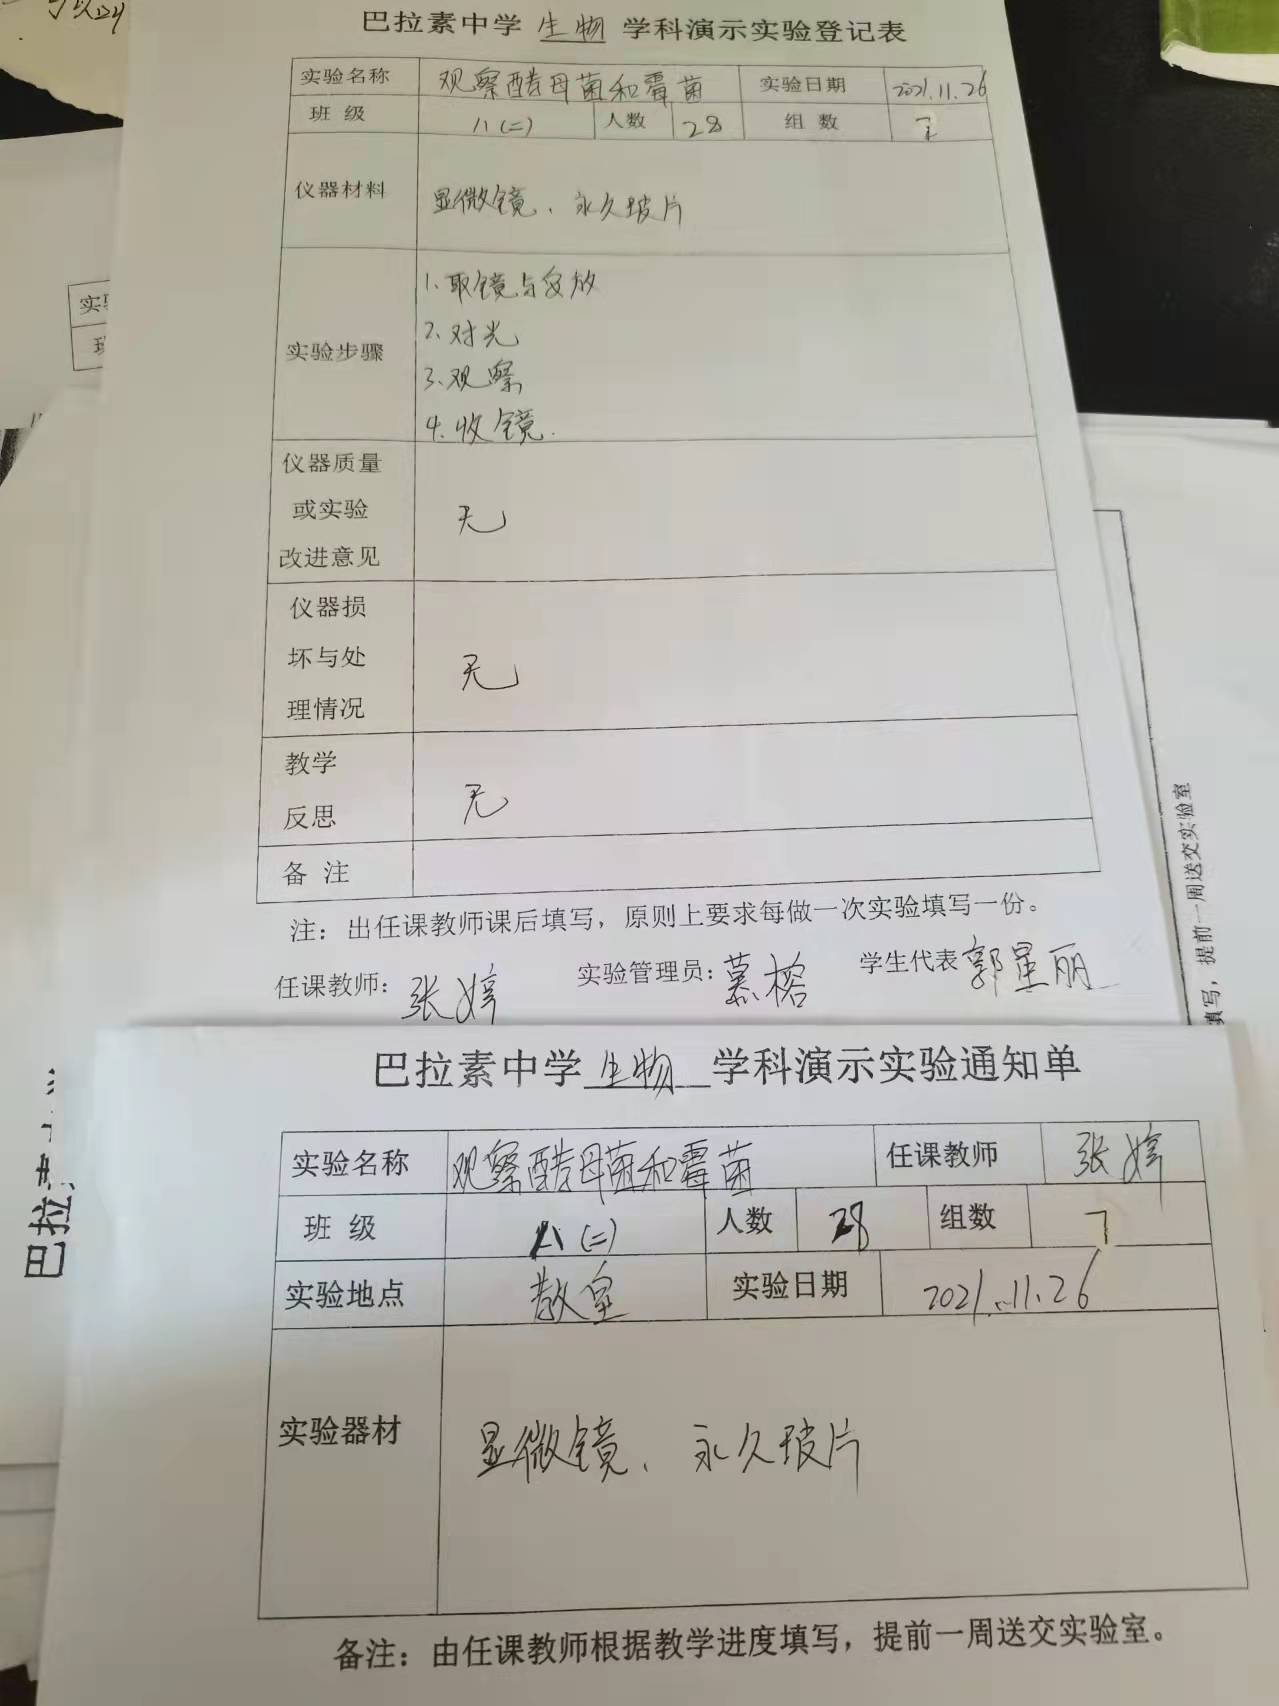 巴拉素中学 生物 学科演示实验登记表
实验名称 观察酵母菌和霉菌 实验日期 2021.11.26
班 级 八(二) 人数 28 组 数 7
仪器材料 显微镜、永久玻片
实验步骤
1.取镜与安放
2.对光
3.观察
4.收镜.
仪器质量
或实验
改进意见
无
仪器损
坏与处
理情况
无
教学
反思
无
备 注
注：出任课教师课后填写，原则上要求每做一次实验填写一份。
任课教师：张婷 实验管理员：慕榕 学生代表 郭星丽
巴拉素中学 生物 学科演示实验通知单
实验名称 观察酵母菌和霉菌 任课教师 张婷
班 级 八(二) 人数 28 组数 7
实验地点 教室 实验日期 2021.11.26
实验器材 显微镜、永久玻片
备注：由任课教师根据教学进度填写，提前一周送交实验室。
填写，提前一周送交实验室
巴拉